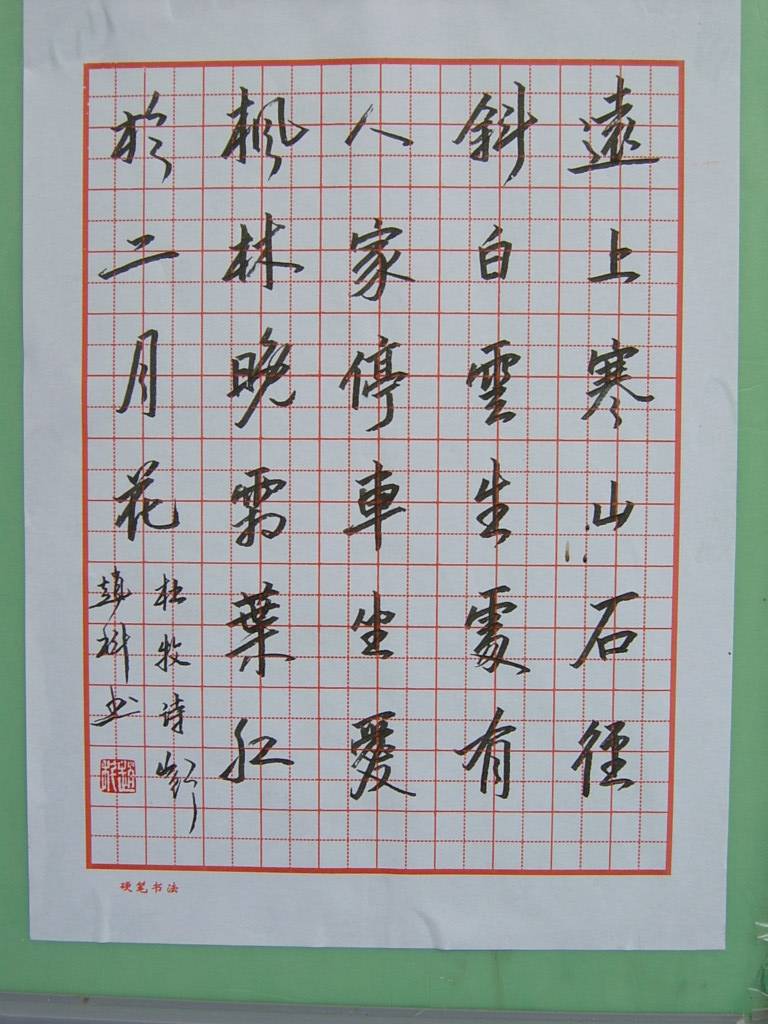 遠上寒山石徑
斜白雲生處有
人家停車坐愛
楓林晚霜葉红
於二月花
杜牧诗山行
趙科书
硬笔书法